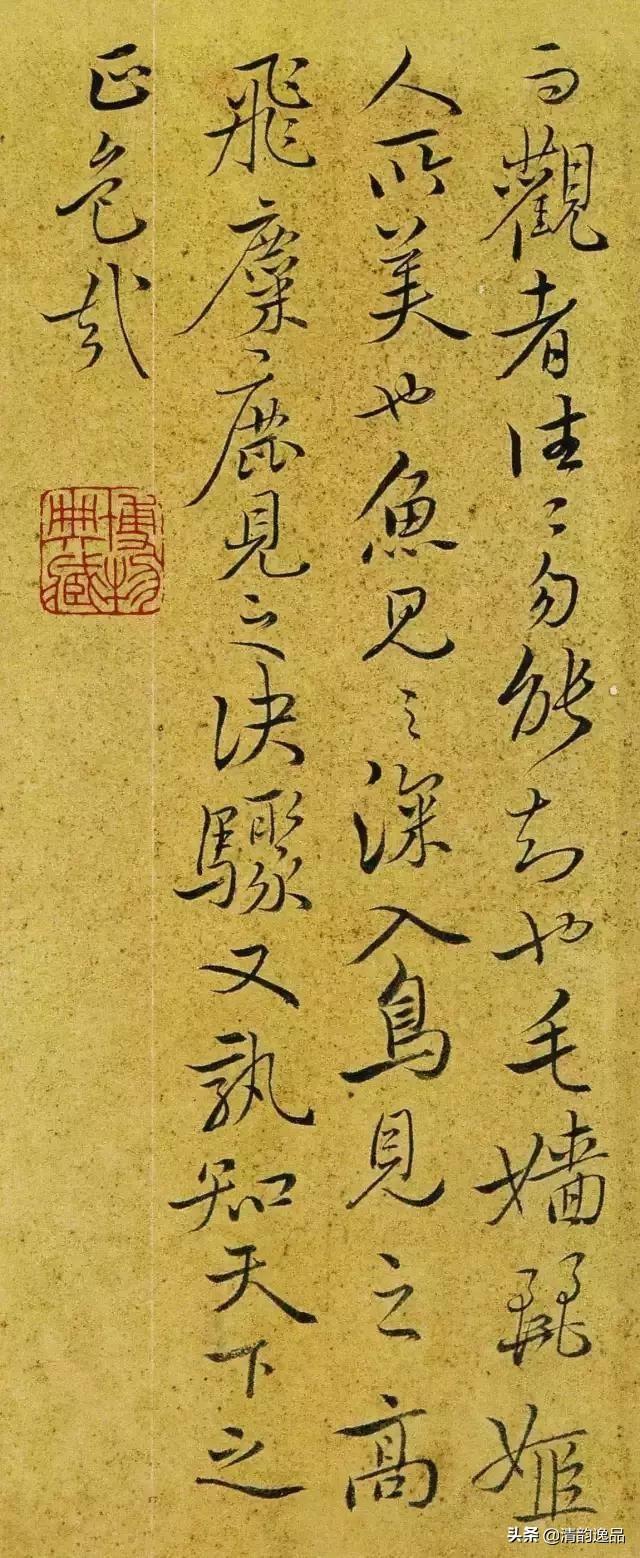 而觀者往〻勿能知也毛嬙麗姬
人所美也魚見之深入鳥見之高
飛麋鹿見之決驟又孰知天下之
正色哉
博物
典藏
头条 @清韵逸品